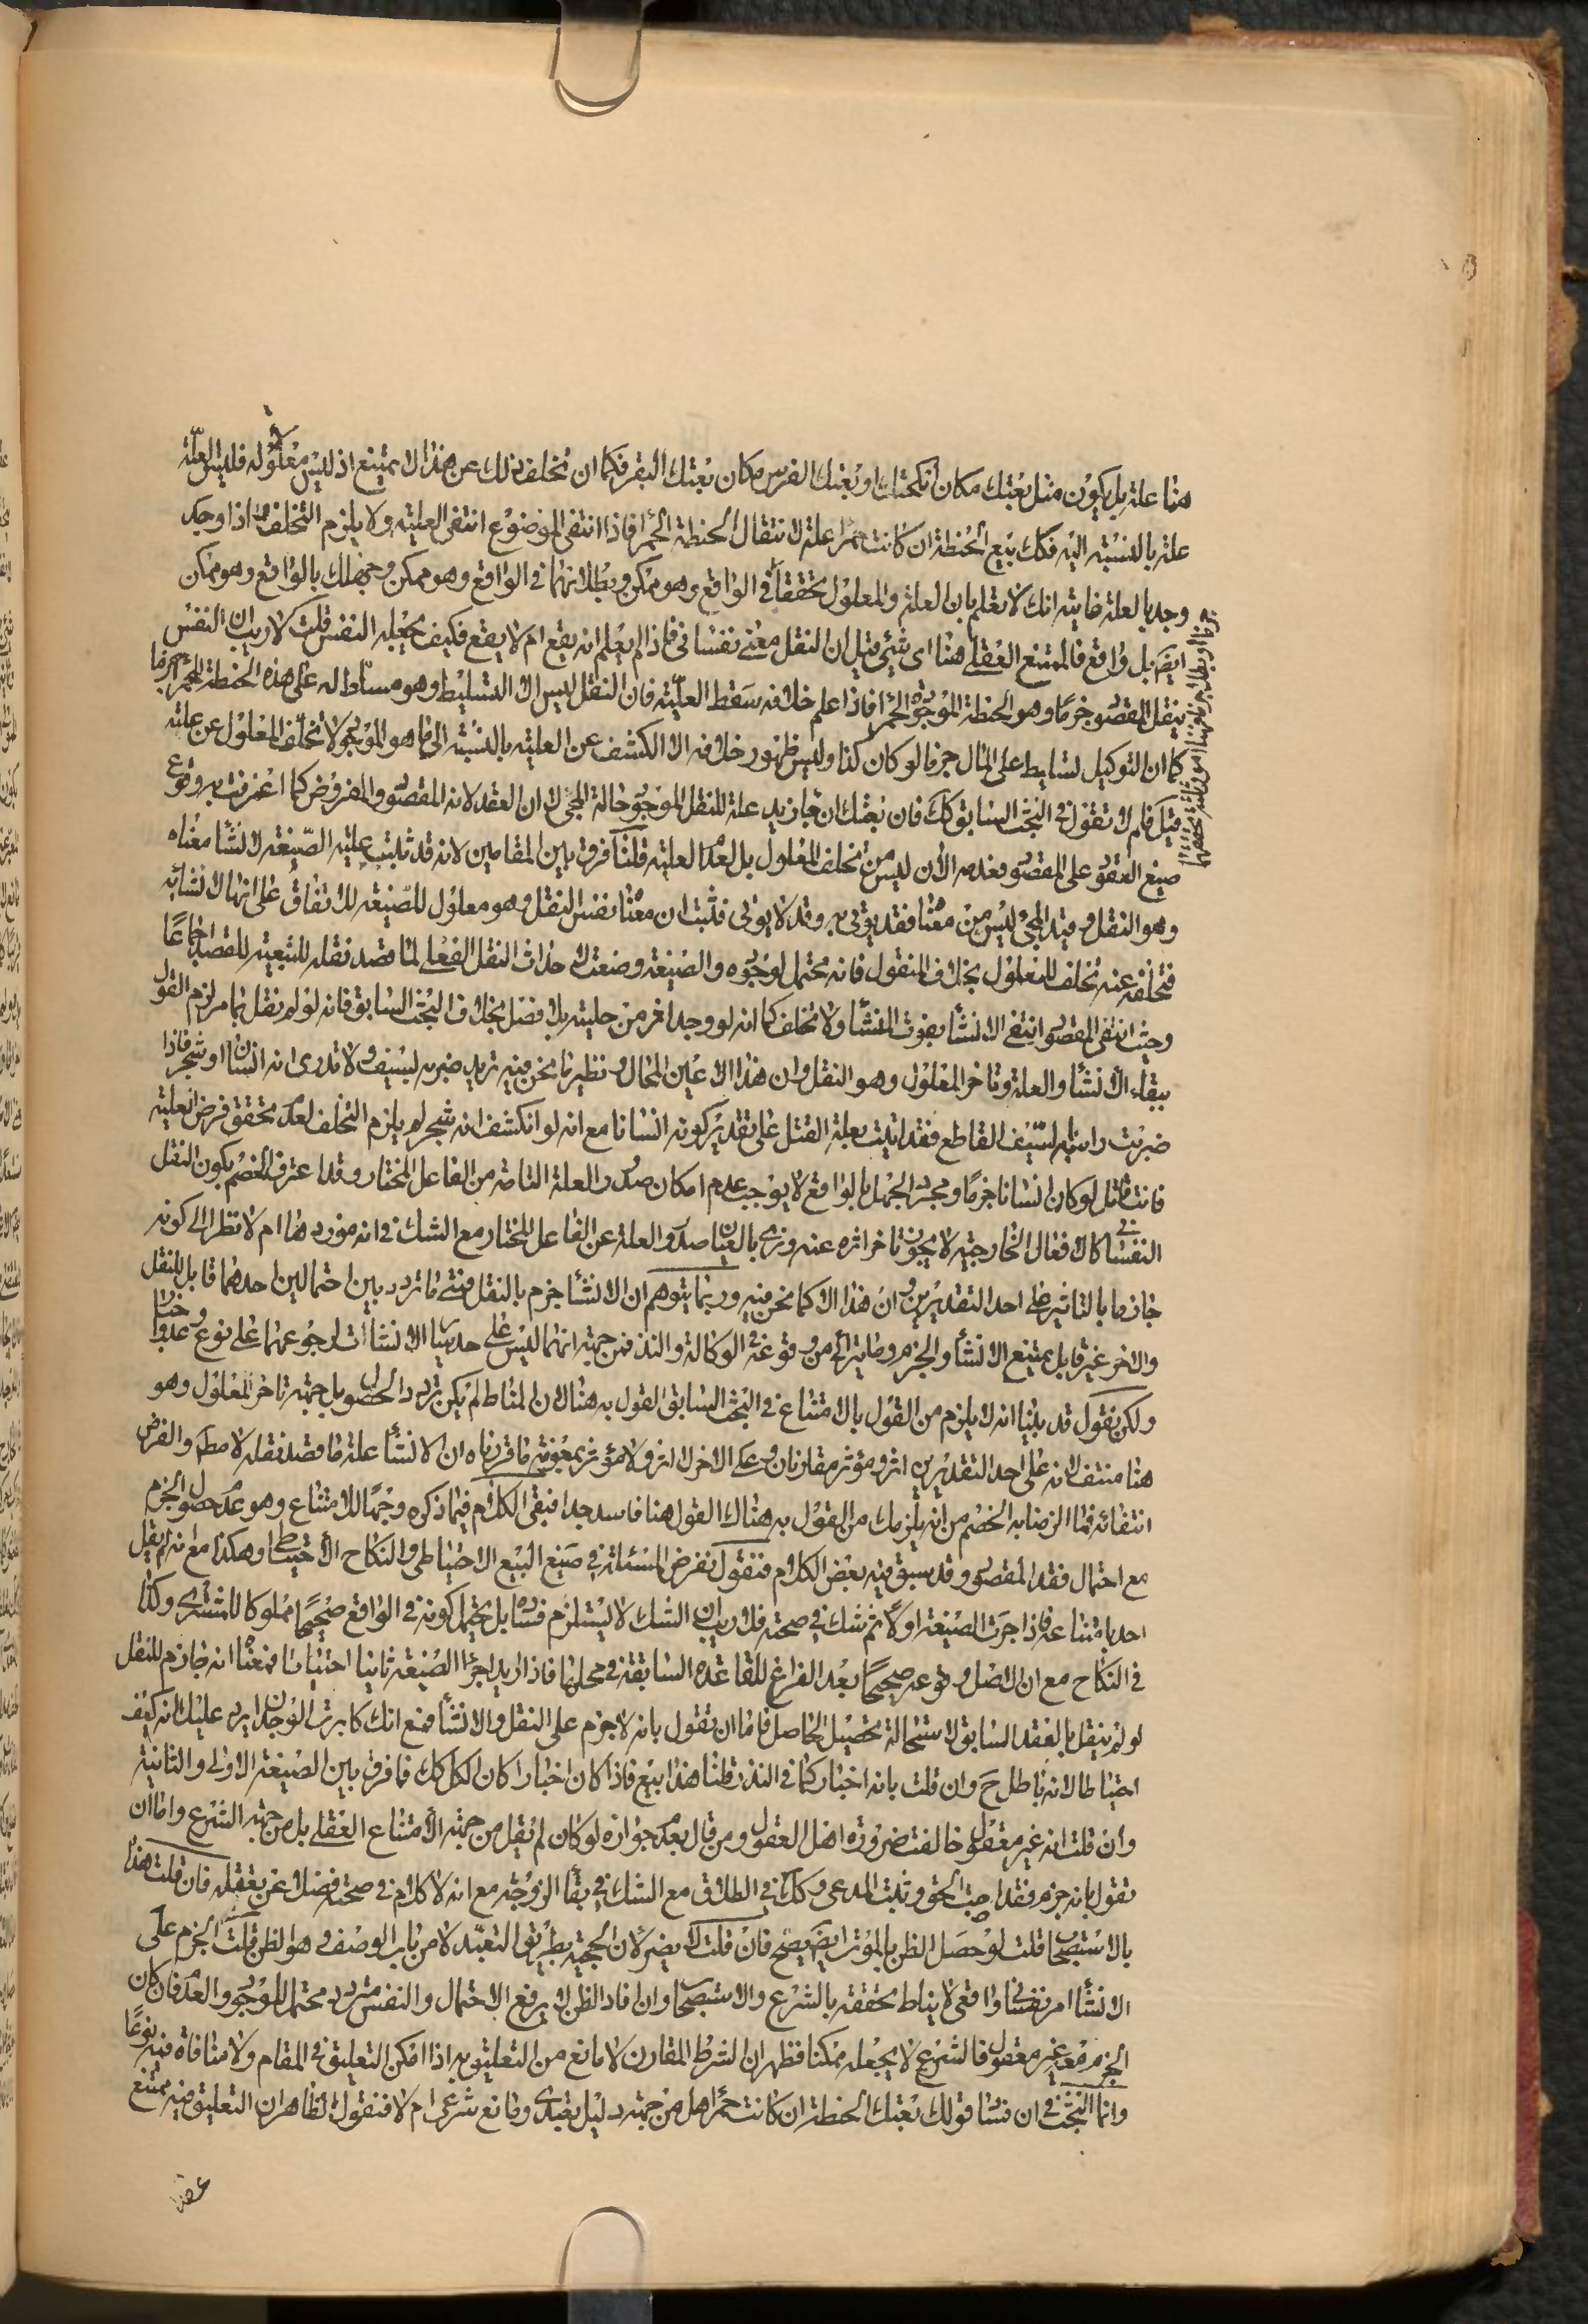 هنا علة بل يكون مثل بعتك مكان انكحتك او بعتك الفرس مكان بعتك البقر فكما ان تخلف ذلك عن هذا لا يمتنع اذ ليس معلولا له فليس العلّة
علة بالنسبة اليه فكك بيع الحنطة ان كانت حمرا علة لانتقال الحنطة الحمرا فاذا انتفى الموضوع انتفى العلية ولا يلزم التخلف اذا وجد
وجد بالعلة غايته انك لا تعلم بان العلة والمعلول تحققا في الواقع وهو ممكن وبطلانهما في الواقع وهو ممكن وجهلك بالواقع وهو ممكن
ايضَ بل واقع فالممتنع العقلي هنا اى شئ قيل ان النقل معنى نفسانى فاذا لم يعلم انه يقع ام لا يقع فكيف يجعله النفس قلت لا ريب ان النفس
ينقل المقصو جزمًا وهو الحنطة الموجوة الحمرا فاذا علم خلافه سقط العلّية فان النقل ليس الا التسليط وهو مسلّط له على هذه الحنطة الحمرا جزما
كما ان التوكيل تسليط على المال جزما لو كان كذا وليس ظهور خلافه الا الكشف عن العلية بالنسبة الى ما هو الموجو لا تخلف المعلول عن علته
قيل فلم لا تقول في البحث السابق كك فان بعتك ان جاء زيد علة للنقل الموجو حالة المجئ لان العقد لانه المقصو والمفروض كما اعترفت به وقوع
صيغ العقو على المقصو فعدمه الان ليس من تخلف المعلول بل لعدم العلية قلنا فرق بين المقامين لانه قد ثبت علية الصّيغة لانشا معناه
وهو النقل وقيد المجئ ليس من معنا فقد يؤتى به وقد لا يؤتى فثبت ان معنا نفس النقل وهو معلول للصّيغة للاتفاق على انها لانشائه
فتخلفه عنه تخلف للمعلول بخلاف المنقول فانه محتمل لوجوه والصيغة وضعت لاحداث النقل الفعلى لما قصد نقله للتبعية للقصد اجماعًا
وحيث انتفى المقصو انتفى الانشأ بفوت المنشأ ولا تخلف كما انه لو وجد اخر من حليته بلا فصل بخلاف البحث السابق فانه لو لم نقل بما مر لزم القول
ببقاء الانشأ والعلة وتاخر المعلول وهو النقل وان هذا الا عين المحال ونظير ما نحن فيه تريد ضربه بسيف ولا تدرى انه انسان او شجر فاذا
ضربت راسه بالسّيف القاطع فقد اتيت بعلة القتل على تقدير كونه انسانا مع انه لو انكشف انه شجر لم يلزم التخلف لعدم تحقق فرض العلية
فانت قاتل لو كان انسانا جزمًا ومجرد الجهل بالواقع لا يوجب عدم امكان صدور العلة التامة من الفاعل المختار وقد اعترف الخصم بكون النقل
النفسانى كالافعال الخارجية لا يجوز تاخر اثره عنه ونرى بالعيان صدو العلة عن الفاعل المختار مع الشك في انه موردها ام لا نظرا الى كونه
جازما بالتاثير على احد التقديرين وان هذا الا كما نحن فيه وربما يتوهم ان الانشأ جزم بالنقل فمتى ما تردد بين احتمالين احدهما قابل للنقل
والاخر غير قابل يمتنع الانشأ والجزم وما يترائى من وقوعه في الوكالة والنذر فمن جهة انهما ليس على حد سيا الانشاات لرجوعهما على نوع وعد واخبا
ولكن نقول قد بينا انه لا يلزم من القول بالامتناع في البحث السابق القول به هنا لان المناط لم يكن تردد الحصول بل جهة تاخر المعلول وهو
هنا منتف لانه على احد التقديرين اثر ومؤثر مقارنان وعلى الاخر لا اثر ولا مؤثر بمعونة ما قررناه ان الانشأ علة ما قصد نقله لا مطَ والفرض
انتفائه فما الزمنا به الخصم من انه يلزمك من القول به هناك القول هنا فاسد جدا فبقى الكلام فيما ذكره وجهًا للامتناع وهو عدم حصول الجزم
مع احتمال فقد المقصو وقد سبق فيه بعض الكلام فنقول نفرض المسئلة في صيغ البيع الاحتياطى والنكاح الاحتياطى وهكذا مع انه لم يقل
احد بامتناعه فاذا اجرت الصيغة اولًا ثم شك في صحته فلا ريب ان الشك لا يستلزم فساده بل يحتمل كونه في الواقع صحيحًا مملوكا للمشترى وكذا
في النكاح مع ان الاصل وقوعه صحيحًا بعد الفراغ للقاعده السابقة في محلها فاذا اريد اجرا الصيغة ثانيا احتياطا فمعنا انه جازم للنقل
لو لم ينقل بالعقد السابق لاستحالة تحصيل الحاصل فاما ان تقول بانه لا جزم على النقل والانشأ فمع انك كابرت الوجدان يرد عليك انه كيف
احتياط لانه باطل حَ وان قلت بانه اخبار كما في النذر قلنا هذا بيع فاذا كان اخبارا كان الكل كك فما فرق بين الصيغة الاولى والثانية
وان قلت انه غير معقول خالفت ضرورة اهل العقول ومن قال بعدم جوازه لو كان لم يقل من جهة الامتناع العقلى بل من جهة الشرع واما ان
تقول بانه جزم فقد اجبت الحق وثبت المدعى وكك في الطلاق مع الشك في بقأ الزوجة مع انه لا كلام في صحته فضلا عن تعقله فان قلت هذا
بالاستصحاب قلت لو حصل الظن بالموت ايضَ يصح فان قلت لا يضر لان الحجية بطريق التعبّد لا من باب الوصف وهو الظن قلت الجزم على
الانشأ امر نفسانى واقعى لا يناط تحققه بالشرع والاستصحا وان افاد الظن لا يرفع الاحتمال والنفس متردد محتمل للموجو والعدم فان كان
الجزم معه غير معقول فالشرع لا يجعله ممكنا فظهر ان الشرط المقارن لا مانع من التعليق به اذا امكن التعليق في المقام ولا منافاة فيه نوعًا
وانما البحث في ان فسا قولك بعتك الحنطة ان كانت حمرا هل من جهة دليل تعبدى ومانع شرعى ام لا فنقول الظاهر ان التعليق فيه ممتنع